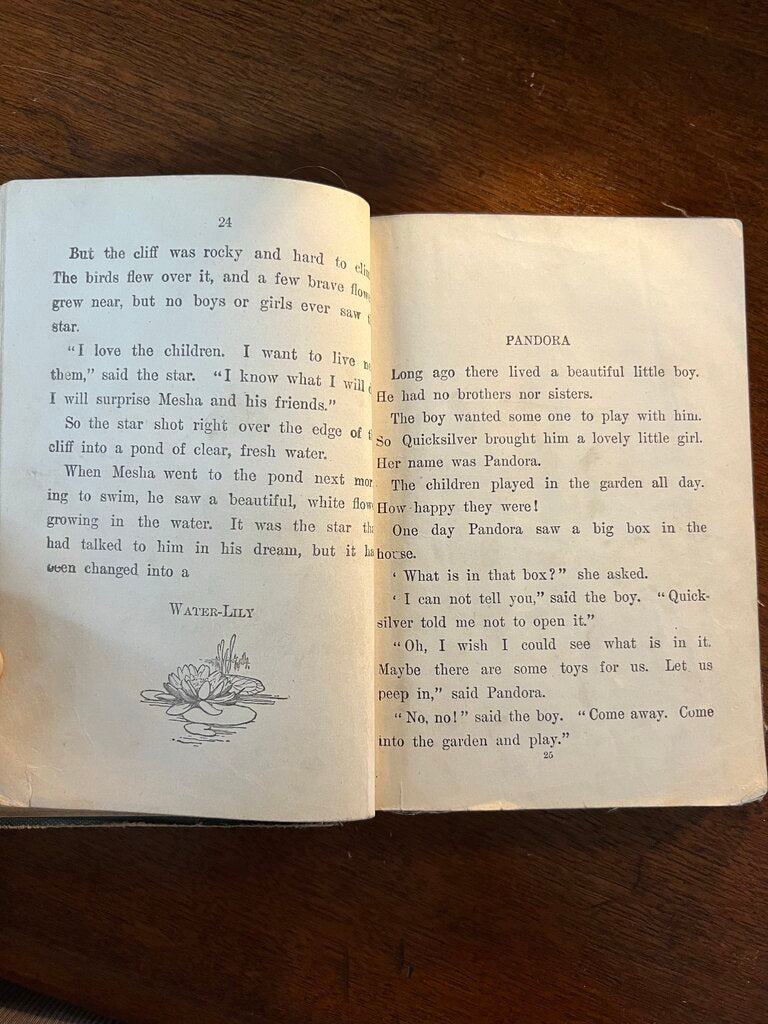 24
But the cliff was rocky and hard to
The birds flew over it, and a few brave
grew near, but no boys or girls ever saw
star.
"I love the children. I want to live
them," said the star. "I know what I will
I will surprise Mesha and his friends."
So the star shot right over the edge of
cliff into a pond of clear, fresh water.
When Mesha went to the pond next
ing to swim, he saw a beautiful, white
growing in the water. It was the star
had talked to him in his dream, but it
been changed into a
WATER-LILY
PANDORA
Long ago there lived a beautiful little boy.
He had no brothers nor sisters.
The boy wanted some one to play with him.
So Quicksilver brought him a lovely little girl.
Her name was Pandora.
The children played in the garden all day.
How happy they were!
One day Pandora saw a big box in the
house.
' What is in that box?" she asked.
' I can not tell you," said the boy. "Quick-
silver told me not to open it."
"Oh, I wish I could see what is in it.
Maybe there are some toys for us. Let us
peep in," said Pandora.
"No, no!" said the boy. "Come away. Come
into the garden and play."
25